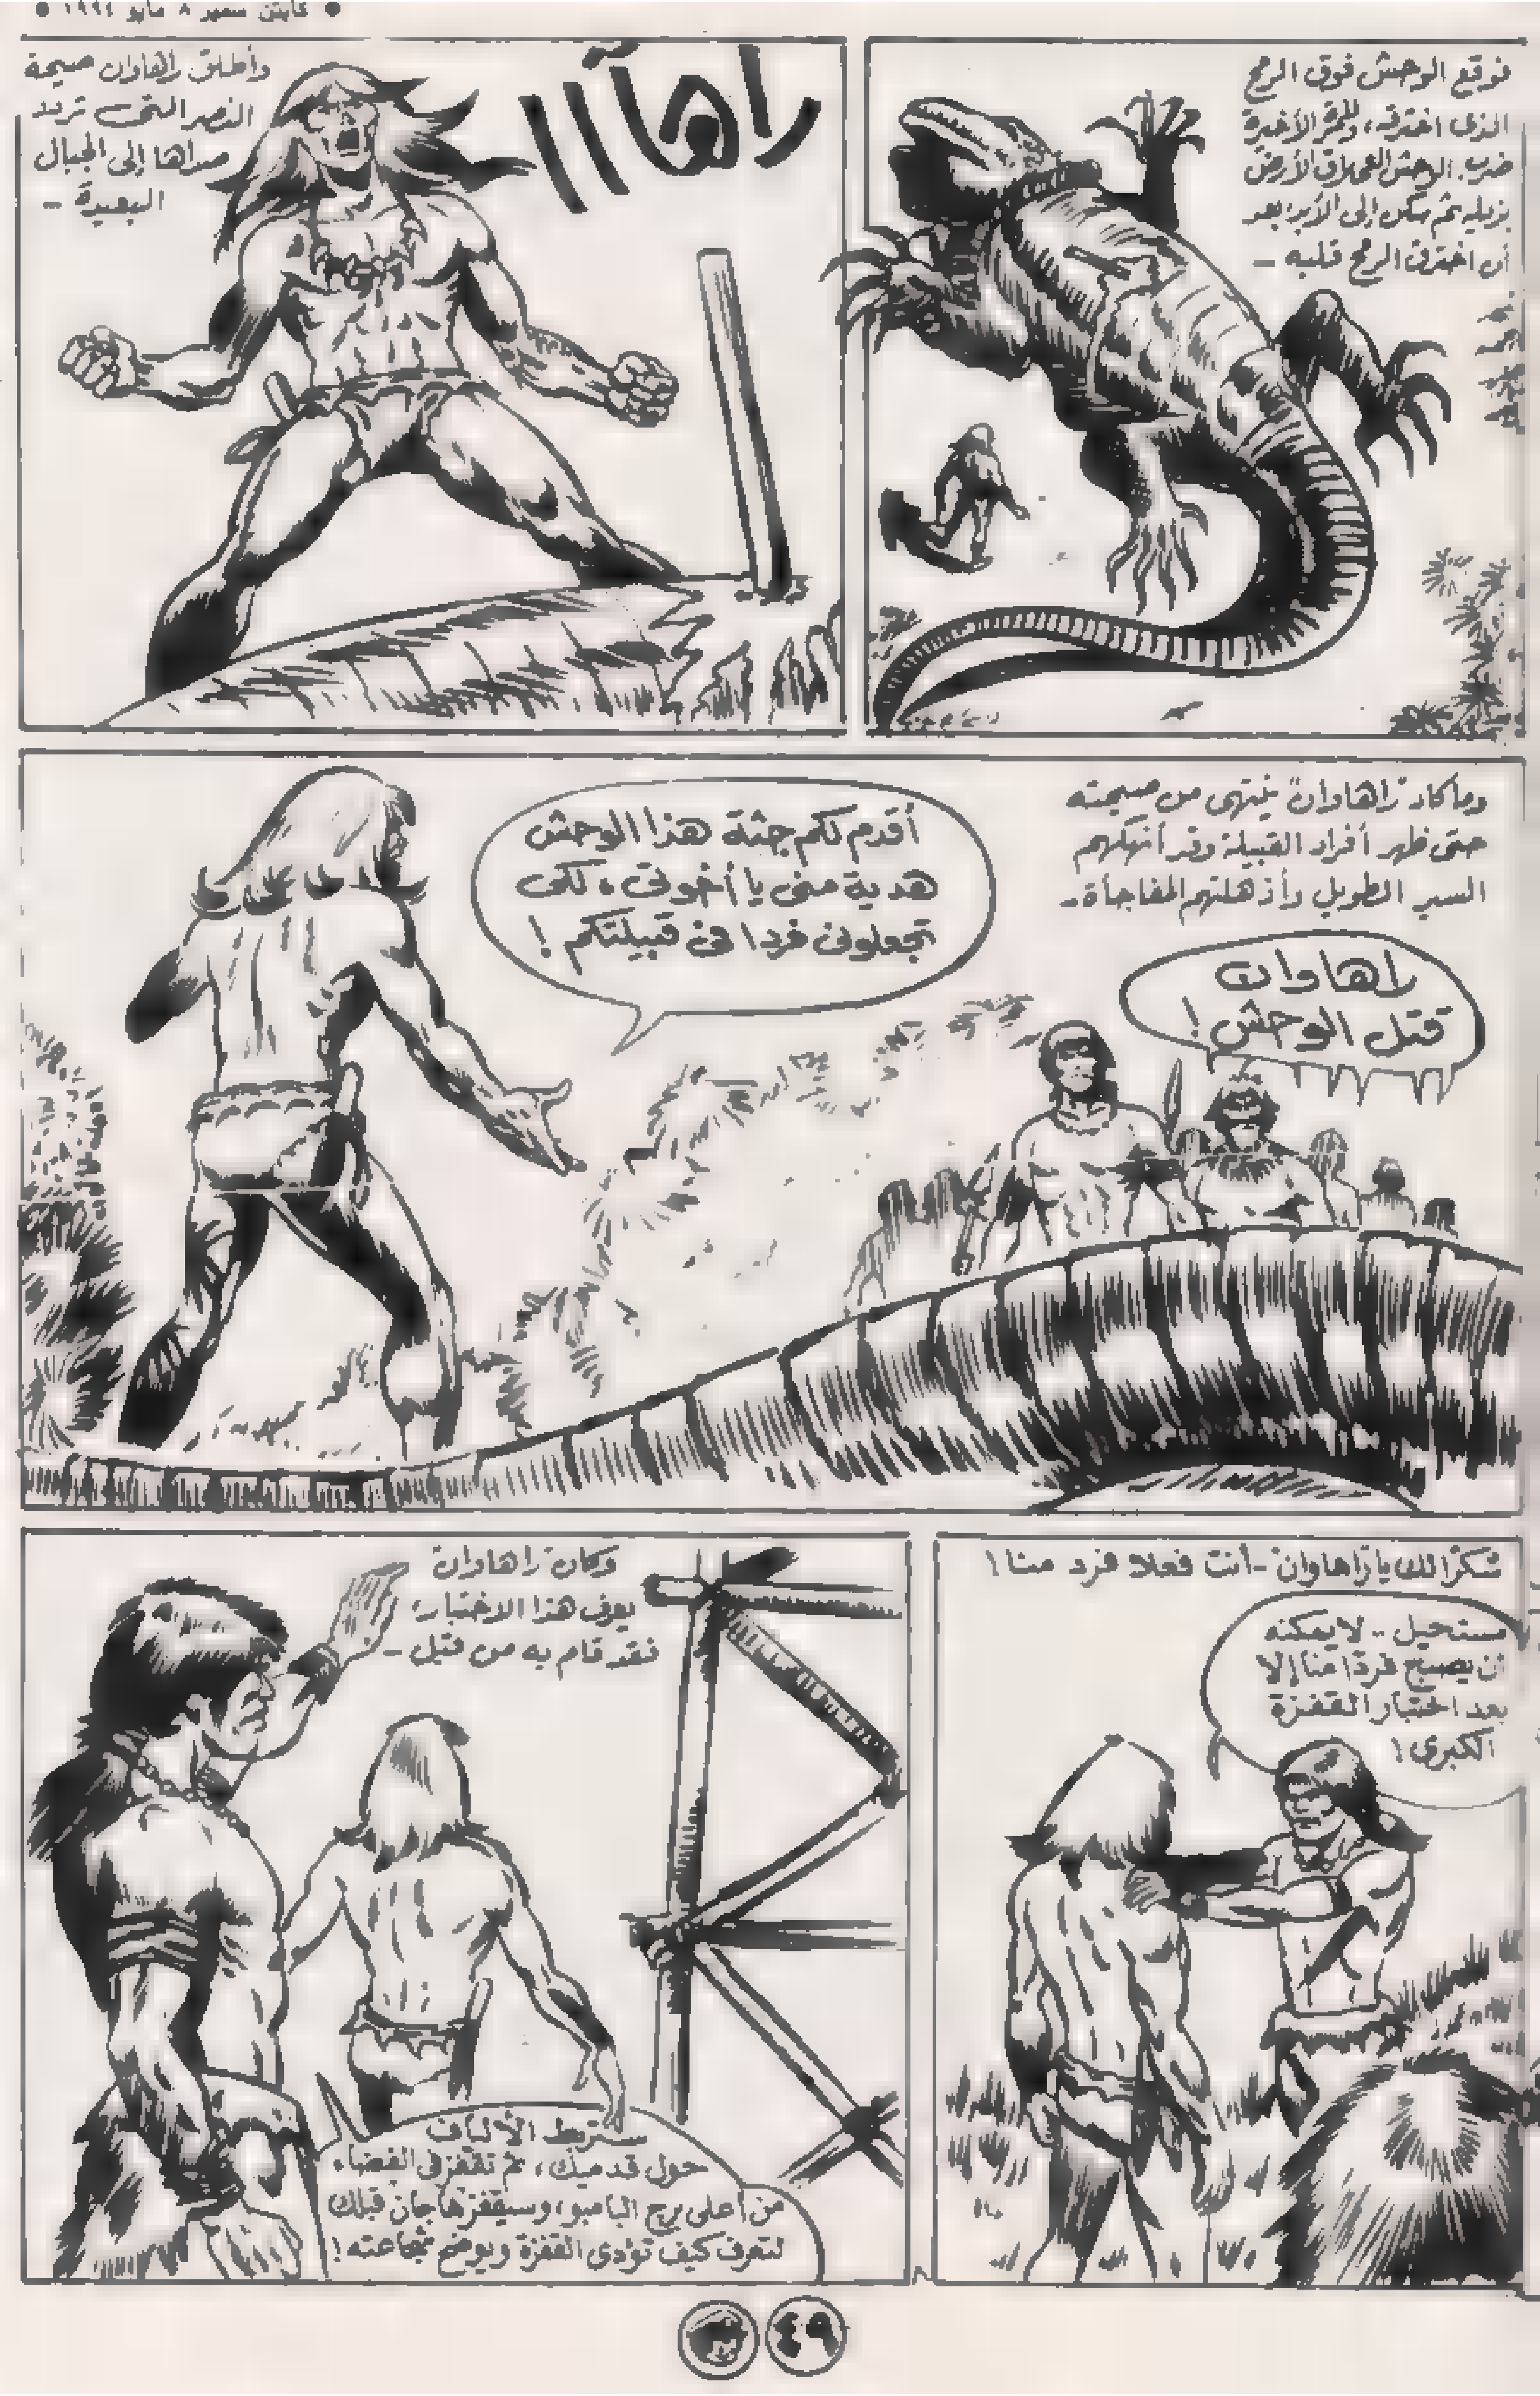 ● كابتن سمير ٨ مايو ١٩٩٤ ●
فوقع الوحش فوق الرمح
الذى اخترقه، وللمرة الأخيرة
ضرب الوحش العملاق الأرض
بذيله ثم سكن إلى الأبد بعد
أن اخترق الرمح قلبه -
وأطلق راهاوان صيحة
النصر التى تردد
صداها إلى الجبال
البعيدة -
راهاآاا
وما كاد "راهاوان" ينتهى من صيحته
حتى ظهر أفراد القبيلة وقد أنهكهم
السير الطويل وأذهلتهم المفاجأة -
راهاوان
قتل الوحش!
أقدم لكم جثة هذا الوحش
هدية منى يا أخوتى، لكى
تجعلونى فردا فى قبيلتكم!
شكرًا لك يا "راهاوان" - أنت فعلا فرد منا!
مستحيل .. لا يمكنه
أن يصبح فردًا منا إلا
بعد اختبار القفزة
الكبرى!
وكان "راهاوان"
يعرف هذا الاختبار؛
فقد قام به من قبل -
ستربط الألياف
حول قدميك، ثم تقفز فى الفضاء
من أعلى برج البامبو، وسيقفز هاجان قبلك
لتعرف كيف تؤدى القفزة ويوضح شجاعته!
٤٩